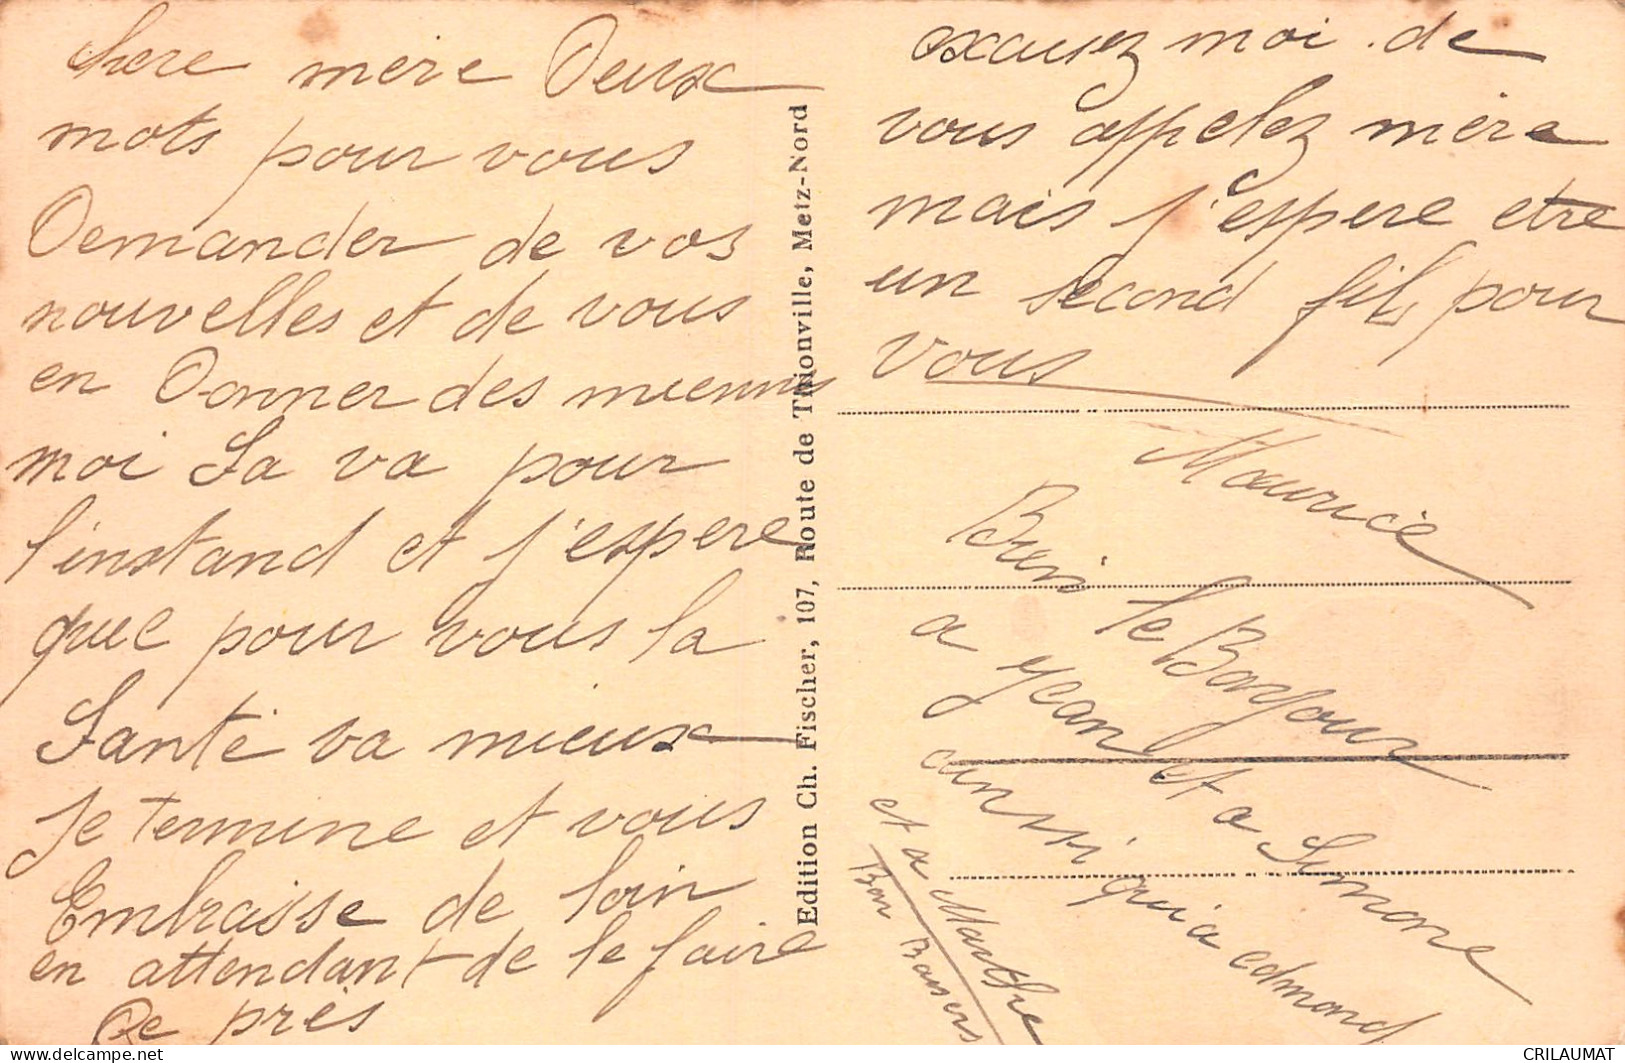 chere mere Deux
mots pour vous
Demander de vos
nouvelles et de vous
en Donner des miennes
moi Sa va pour
l'instand et j'espere
que pour vous la
Santé va mieux
Je termine et vous
Embrasse de loin
en attendant de le faire
De près
Edition Ch. Fischer, 107, Route de Thionville, Metz-Nord
excusez moi de
vous appelez mère
mais j'espere etre
un second fils pour
vous
Maurice
Bien le Bonjour
a Jean et a Simone
aussi qu'a edmond
et a Marthe
Bon Baisers
CRILAUMAT